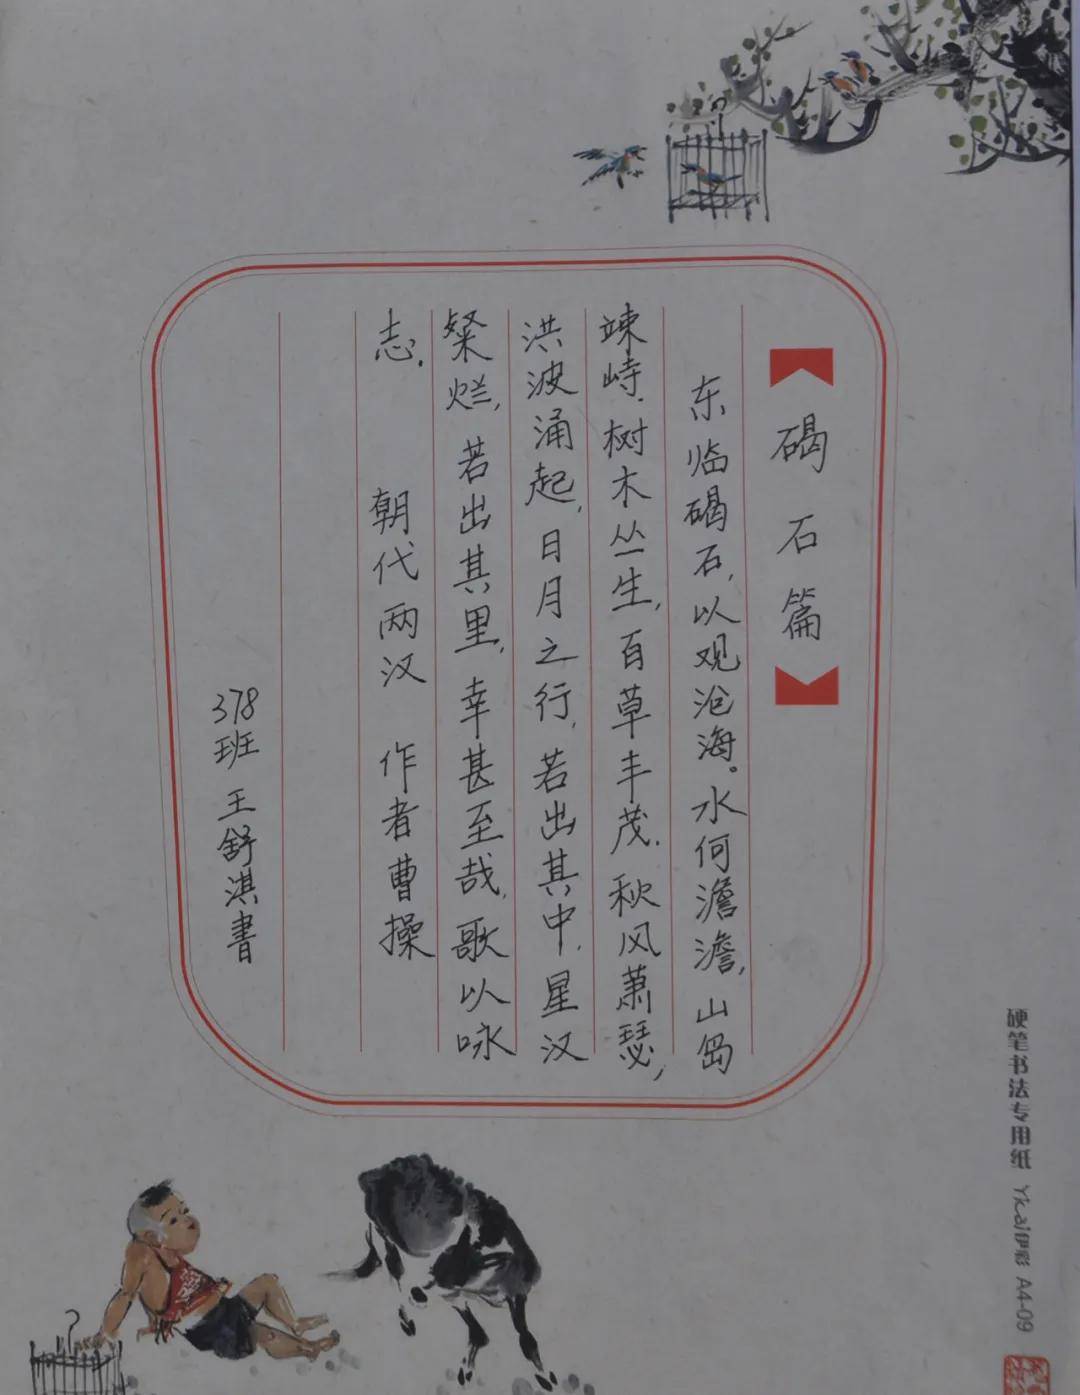 碣石篇
东临碣石,以观沧海。水何澹澹,山岛
竦峙.树木丛生,百草丰茂.秋风萧瑟,
洪波涌起,日月之行,若出其中.星汉
粲烂,若出其里,幸甚至哉,歌以咏
志. 朝代两汉 作者曹操
378班 王舒淇書
硬笔书法专用纸 Yicai伊彩 A4-09